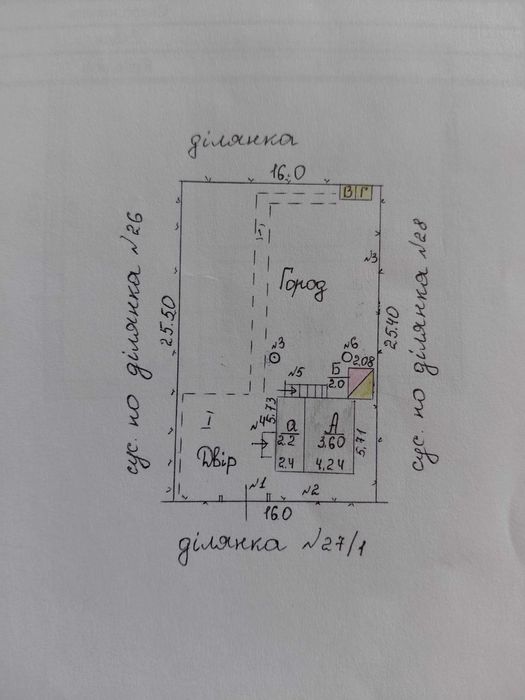 ділянка
16.0
В Г
I
№3
Город
сус. по ділянка №26
25.50
25.40
сус. по ділянка №28
№3
№6
Б
2.0
2.08
№5
5.73
I
№4
а
2.2
2.4
А
3.60
4.24
5.71
Двір
№1
№2
16.0
ділянка №27/1